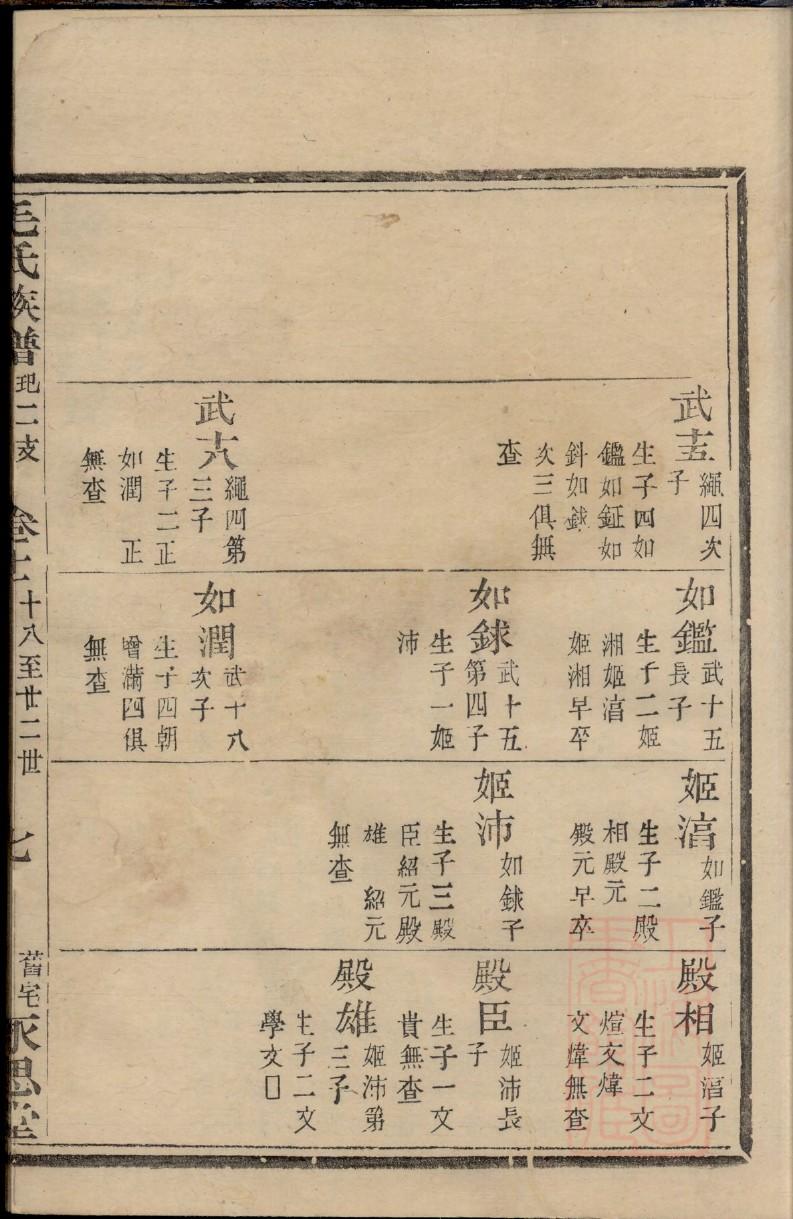 武十五
繩四次
子
生子四如
鑑如鉦如
鈄如銶
次三俱無
查
武十八
繩四第
三子
生子二正
如潤 正
無查
如鑑
武十五
長子
生子二姬
湘姬湻
姬湘早卒
如銶
武十五
第四子
生子一姬
沛
如潤
武十八
次子
生子四朝
曾滿四俱
無查
姬湻
如鑑子
生子二殿
相殿元
殿元早卒
姬沛
如銶子
生子三殿
臣紹元殿
雄 紹元
無查
殿相
姬湻子
生子二文
煊文煒
文煒無查
殿臣
姬沛長
子
生子一文
貴無查
殿雄
姬沛第
三子
生子二文
學文□
毛氏族譜 玘二支 卷十 十八至廿二世 七 舊宅永思堂